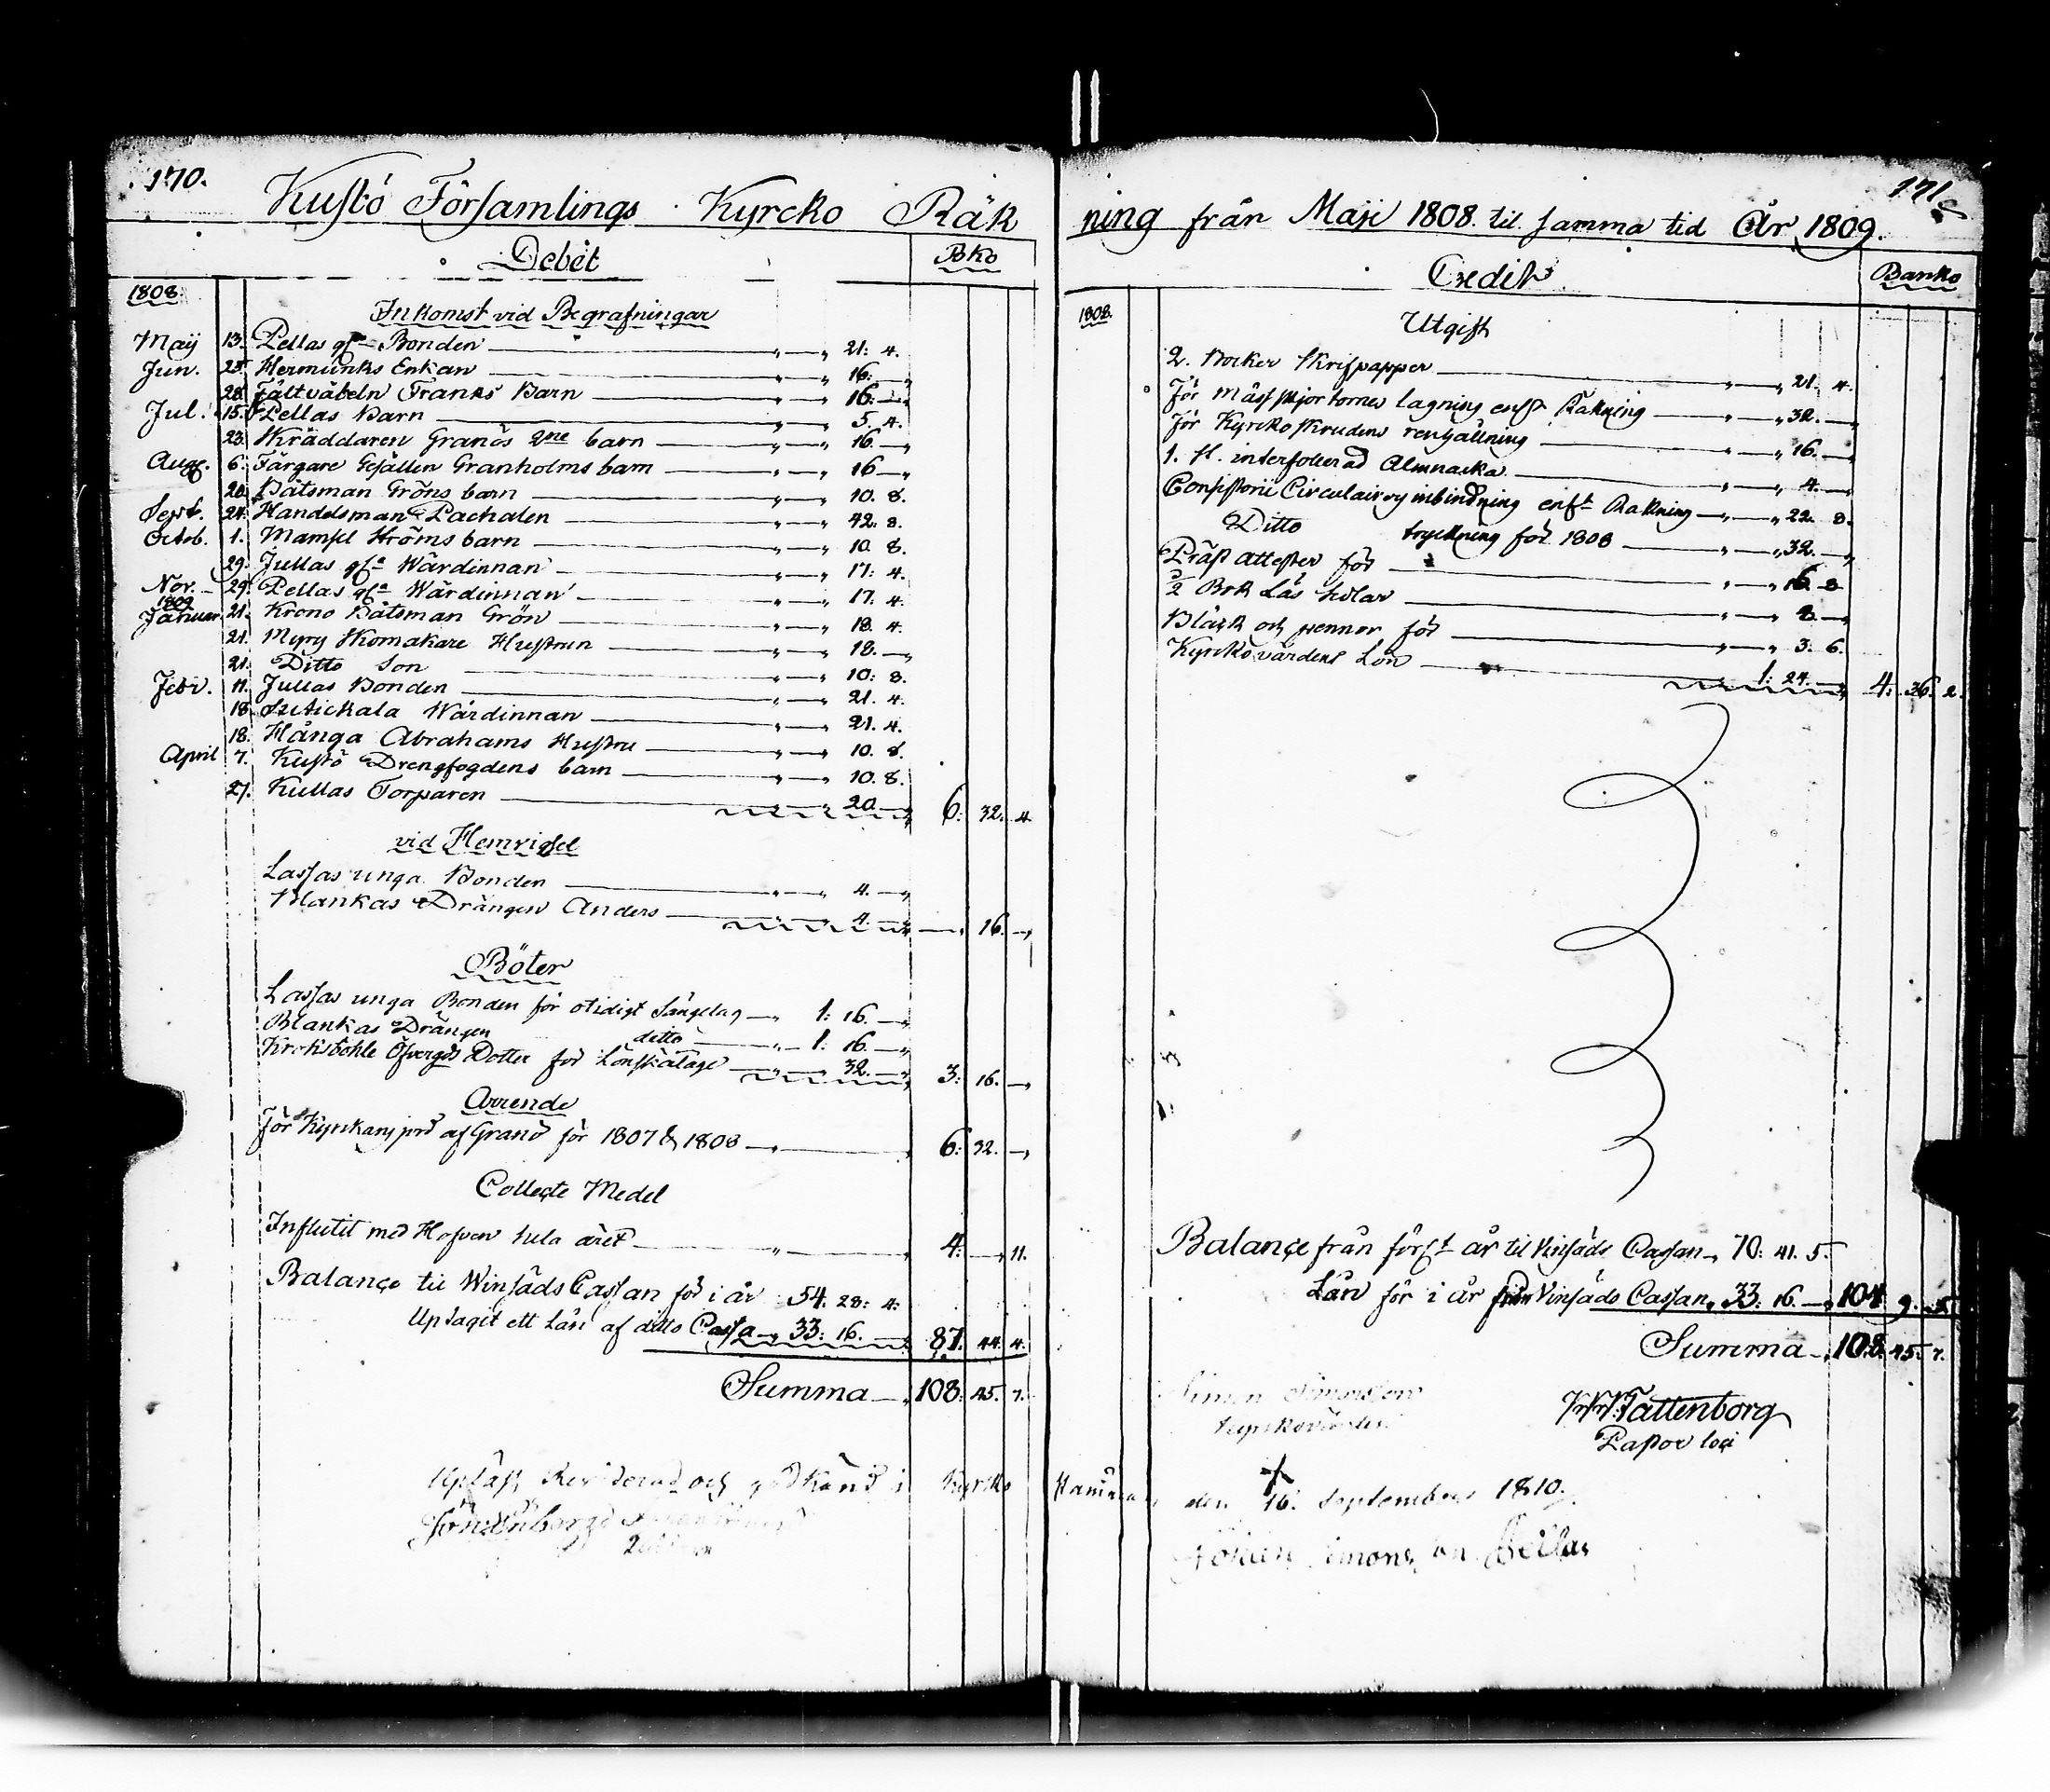 170.
Kustö Församlings Kyrcko Räk
Debet Bko
1808.
Inkomst vid Begrafningar
Maij 13. Pellas gle Bonden 21: 4.
Jun. 25. Hermunks Enkan 16.
28. Fältväbeln Franks Barn 16.
Jul. 15. Pellas Barn 5. 4.
23. Skräddaren Granös 2ne barn 16.
Aug. 6. Färgare Gesällen Granholms barn 16
20. Båtsman Gröns barn 10. 8.
Sept. 24. Handelsman Pachalen 42. 8.
Octob. 1. Mamsel Ströms barn 10. 8.
29. Jullas gla Wärdinnan 17: 4.
Nov. 29. Pellas gla Wärdinnan 17: 4.
1809
Januar. 21. Krono Båtsman Grön 18. 4.
21. Myry Skomakare Hustrun 18.
21. Ditto Son 10: 8.
Febr. 11. Jullas Bonden 21. 4.
18. Wärdinnan 21. 4.
18. Hånga Abrahams Hustru 10. 8.
April 7. Kustö Drengfogdens barn 10. 8.
27. Kullas Torparen 20. 6: 32. 4
vid Hemvigsel
Lassas unga Bonden 4.
Blankas Drängen Anders 4. 16.
Böter
Lassas unga Bonden för otidigt Sängelag 1: 16.
Blankas Drängen ditto 1: 16.
Dotter för Lönskaläge 32. 3: 16.
Arrende
För Kyrkans jord af Grand för 1807 & 1808 6: 32.
Collecte Medel
Influtit med Hofven hela året 4: 11.
Balançe til Winsäds Cassan för i år 54. 28: 4:
Updagit ett Lån af ditto Cassa 33: 16. 87. 44. 4.
Summa 108: 45. 7.
Upläst, Reviderad och godkänd i Kyrko
171
ning från Maji 1808. til samma tid År 1809.
Credit Banko
1808.
Utgift
2. Böcker Skrifpapper 21. 4.
För Mässskjortornes lagning enst Räkning 32.
För Kyrcko skrudens rengällning 16.
1. st. interfolierad Almnacka 4.
Consistorii Circulairs inbindning enst Räkning 22. 8.
Ditto tryckning för 1808 32.
Präst Attester för 16. 8
1/2 Bok Läs sedlar 8.
Bläck och pennor för 3. 6.
Kyrkovärdens Lön 1: 24. 4: 36. 2.
Balançe från förft år til Vinsäds Cassan 70: 41. 5.
Lån för i år från Vinsäds Cassan 33: 16. 104 9. 5
Summa 108. 45. 7.
Simon Simonsson
Kyrkovärden
Tattenborg
Pastor loci
Stämma den 16. September 1810.
Simonsson Pellas